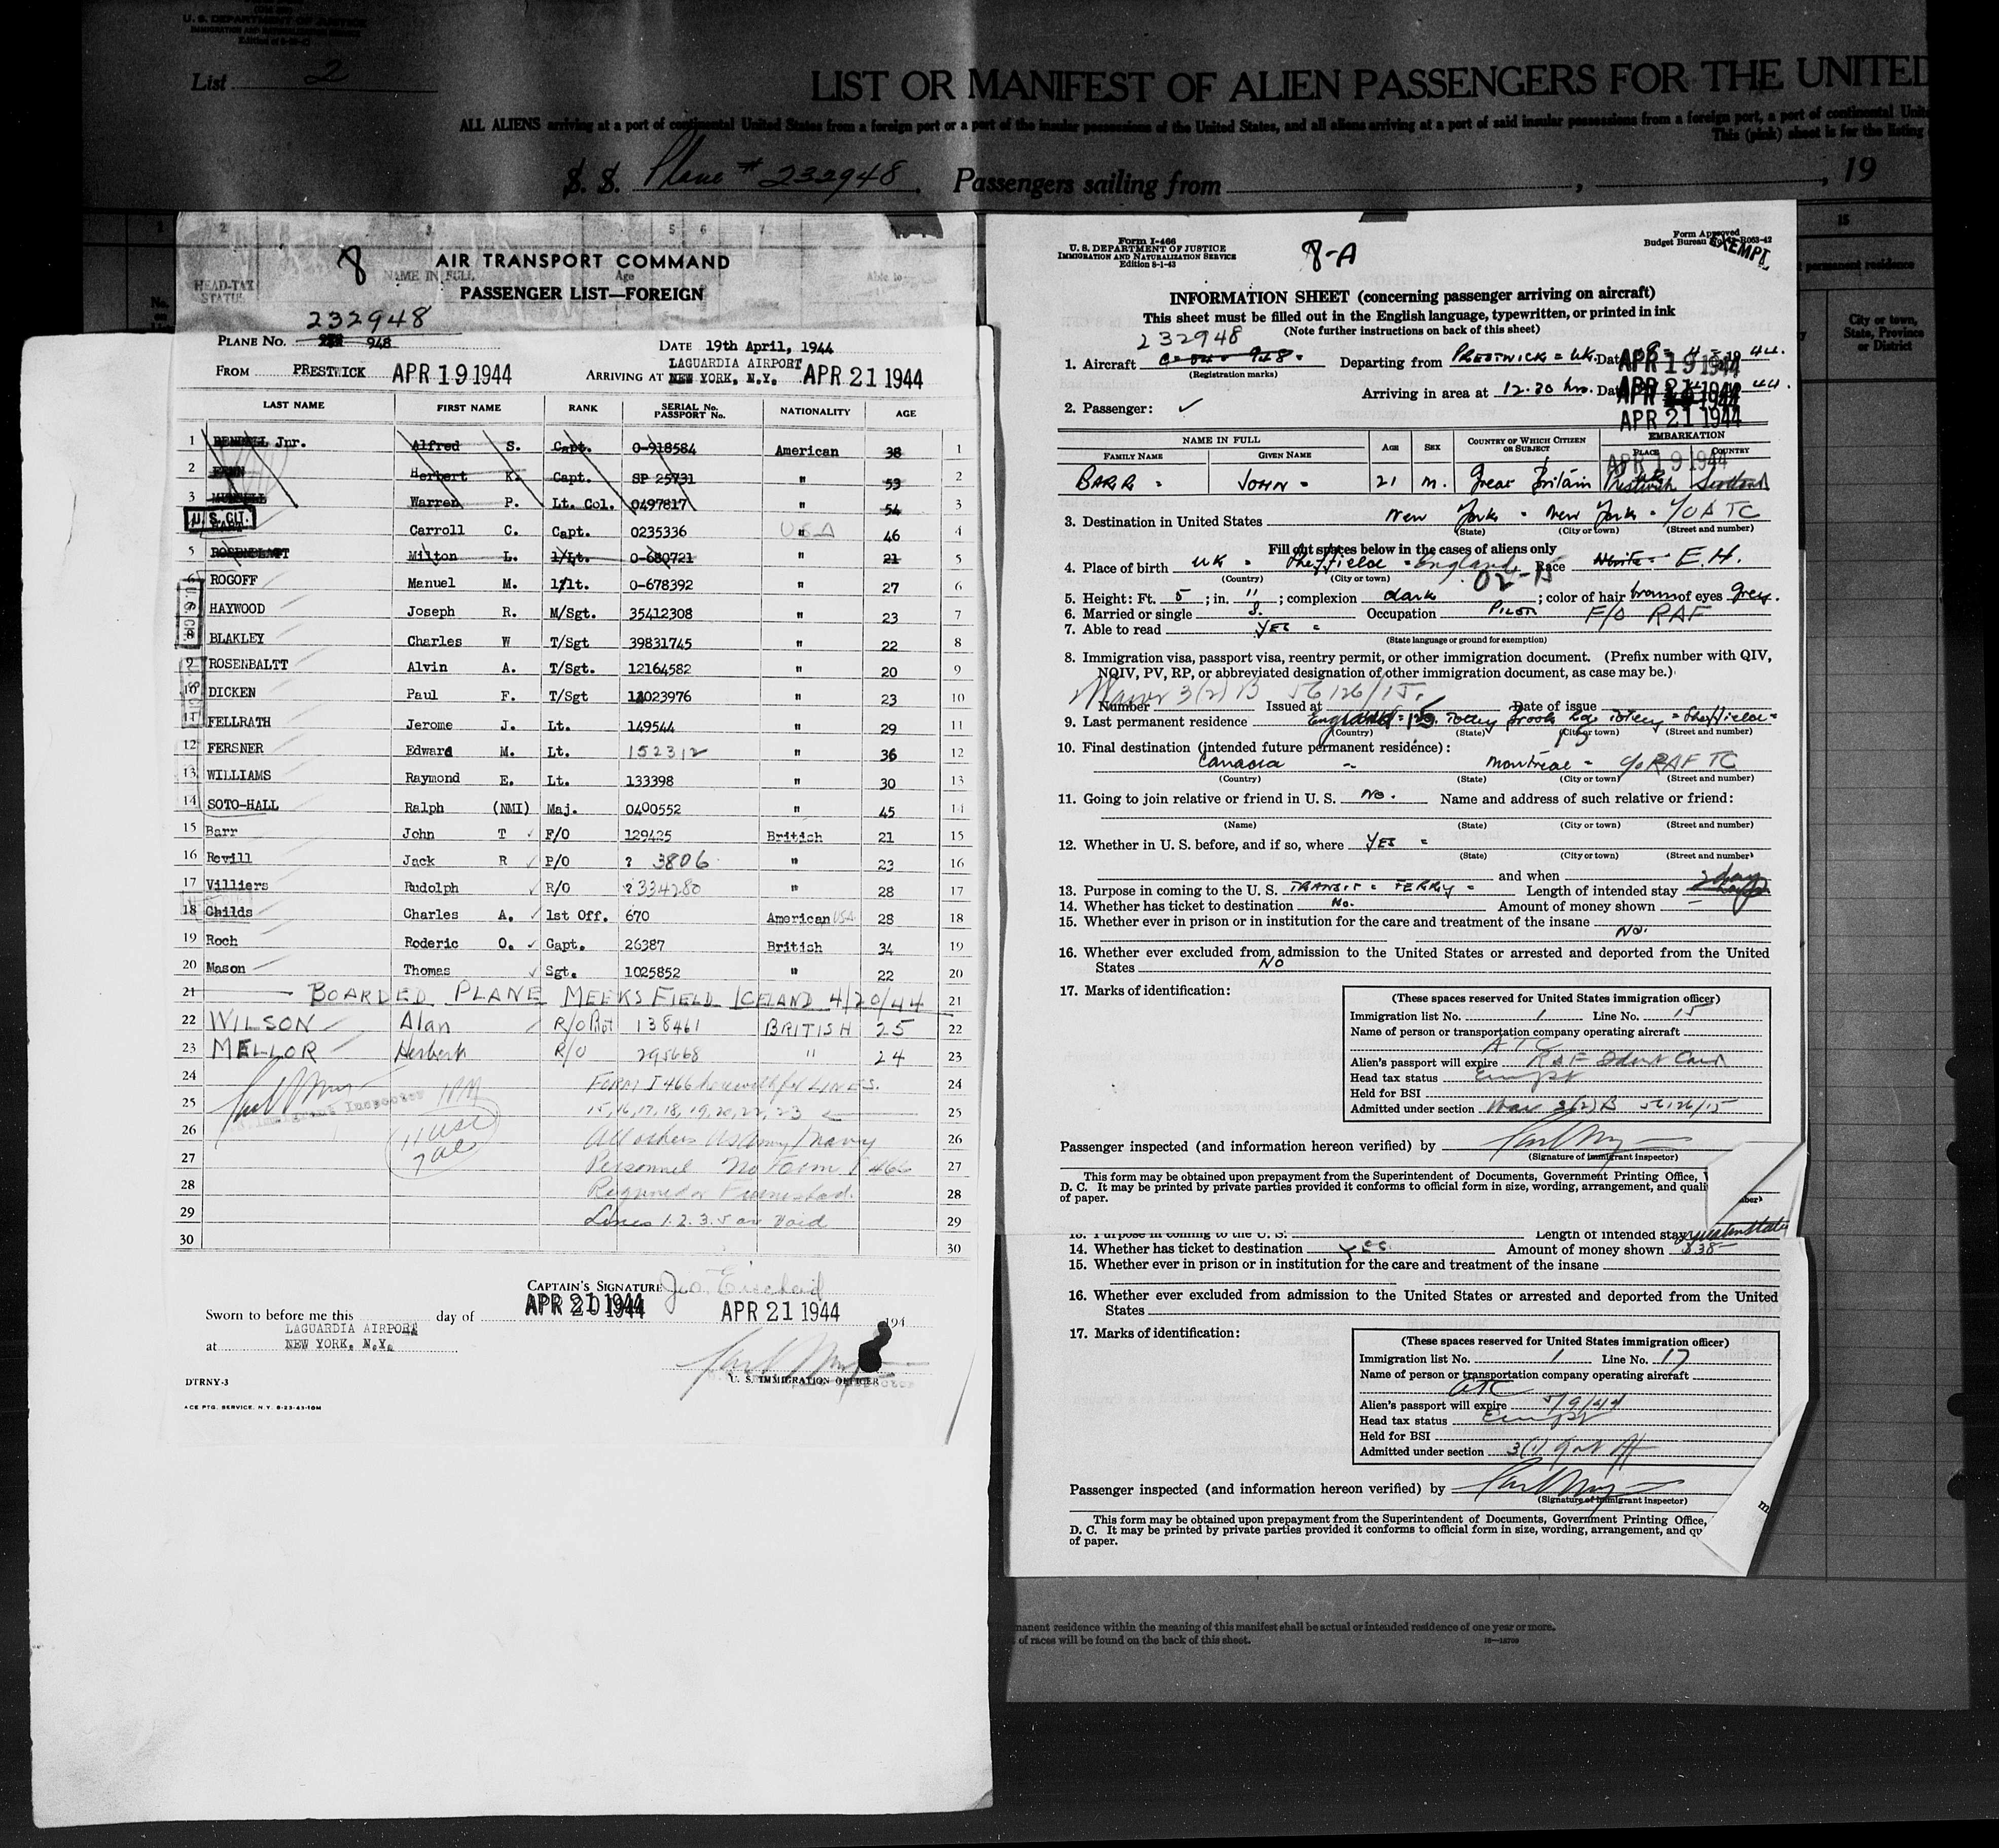 U. S. DEPARTMENT OF JUSTICE
IMMIGRATION AND NATURALIZATION SERVICE
List 2
LIST OR MANIFEST OF ALIEN PASSENGERS FOR THE UNITED
ALL ALIENS arriving at a port of continental United States from a foreign port or a port of the insular possessions of the United States, and all aliens arriving at a port of said insular possessions from a foreign port, a port of continental
This (pink) sheet is for the listing
S. S. Plane # 232948, Passengers sailing from , , 19
8
AIR TRANSPORT COMMAND
NAME IN FULL Age Able to
HEAD-TAX STATUS
PASSENGER LIST—FOREIGN
232948
PLANE No. 948 DATE 19th April, 1944
FROM PRESTWICK APR 19 1944 ARRIVING AT LAGUARDIA AIRPORT NEW YORK, N.Y. APR 21 1944
LAST NAME FIRST NAME RANK SERIAL No. PASSPORT No. NATIONALITY AGE
1 Jnr. Alfred S. Capt. 0-918584 American 38 1
2 Herbert K. Capt. SP 25731 " 53 2
3 Warren P. Lt. Col. 0497817 " 54 3
U. S. CIT. Carroll C. Capt. 0235336 " USA 46 4
5 ROSENBLATT Milton L. 1/Lt. 0-680721 " 21 5
6 ROGOFF Manuel M. 1/lt. 0-678392 " 27 6
7 HAYWOOD Joseph R. M/Sgt. 35412308 " 23 7
8 BLAKLEY Charles W T/Sgt 39831745 " 22 8
9 ROSENBALTT Alvin A. T/Sgt. 12164582 " 20 9
10 DICKEN Paul F. T/Sgt 11023976 " 23 10
11 FELLRATH Jerome J. Lt. 149544 " 29 11
12 FERSNER Edward M. Lt. 152312 " 36 12
13 WILLIAMS Raymond E. Lt. 133398 " 30 13
14 SOTO-HALL Ralph (NMI) Maj. 0400552 " 45 14
15 Barr John T F/O 129425 British 21 15
16 Revill Jack R P/O ? 3806 " 23 16
17 Villiers Rudolph R/O ? 334280 " 28 17
18 Childs Charles A. 1st Off. 670 American USA 28 18
19 Roch Roderic O. Capt. 26387 British 34 19
20 Mason Thomas Sgt. 1025852 " 22 20
21 BOARDED PLANE MEEKS FIELD ICELAND 4/20/44 21
22 WILSON Alan R/O 138461 BRITISH 25 22
23 MELLOR Herbert R/O 295668 " 24 23
24 FORM I 466 herewith for LINES. 24
25 Immigrant Inspector 15, 16, 17, 18, 19, 20, 22, 23 25
26 11 USC All others US Army/Navy 26
27 7 al Personnel No Form I 466 27
28 Required or Furnished. 28
29 Lines 1. 2. 3. 5 are Void 29
30 30
CAPTAIN'S SIGNATURE
Sworn to before me this day of APR 21 1944 APR 21 1944 194
at LAGUARDIA AIRPORT
NEW YORK, N.Y.
U. S. IMMIGRATION OFFICER
DTRNY-3
ACE PTG. SERVICE, N.Y. 8-23-43-10M
Form I-466
U. S. DEPARTMENT OF JUSTICE
IMMIGRATION AND NATURALIZATION SERVICE
Edition 8-1-43
8-A
Form Approved
Budget Bureau No. R063-42
EXEMPT
INFORMATION SHEET (concerning passenger arriving on aircraft)
This sheet must be filled out in the English language, typewritten, or printed in ink
(Note further instructions on back of this sheet)
232948
1. Aircraft 948 Departing from PRESTWICK = UK. Date APR 19 1944
(Registration marks)
Arriving in area at 12.30 hrs. Date APR 21 1944
APR 21 1944
2. Passenger: ✓
NAME IN FULL AGE SEX COUNTRY OF WHICH CITIZEN OR SUBJECT EMBARKATION
FAMILY NAME GIVEN NAME PLACE COUNTRY
APR 19 1944
BARR JOHN 21 M. Great Britain Prestwick Scotland
3. Destination in United States New York - New York - C/O ATC
(State) (City or town) (Street and number)
Fill out spaces below in the cases of aliens only
4. Place of birth UK = Sheffield = England Race White E.H.
(Country) (City or town)
5. Height: Ft. 5; in. 11; complexion dark; color of hair brown of eyes Grey.
6. Married or single S. Occupation PILOT F/O RAF
7. Able to read YES
(State language or ground for exemption)
8. Immigration visa, passport visa, reentry permit, or other immigration document. (Prefix number with QIV,
NQIV, PV, RP, or abbreviated designation of other immigration document, as case may be.)
Waiver 3(2) B 56126/15.
Number Issued at Date of issue
9. Last permanent residence England Totley Brook Rd Totley = Sheffield =
(Country) (State) (City or town) (Street and number)
10. Final destination (intended future permanent residence):
Canada - Montreal = C/o RAF TC
(Country) (State) (City or town) (Street and number)
11. Going to join relative or friend in U. S. No. Name and address of such relative or friend:
(Name) (State) (City or town) (Street and number)
12. Whether in U. S. before, and if so, where YES
(State) (City or town) (Street and number)
and when
13. Purpose in coming to the U. S. TRANSIT = FERRY = Length of intended stay
14. Whether has ticket to destination No. Amount of money shown
15. Whether ever in prison or in institution for the care and treatment of the insane
No.
16. Whether ever excluded from admission to the United States or arrested and deported from the United
States NO
17. Marks of identification:
(These spaces reserved for United States immigration officer)
Immigration list No. 1 Line No. 15
Name of person or transportation company operating aircraft
ATC
Alien's passport will expire RAF Ident Card
Head tax status Exempt
Held for BSI
Admitted under section Waiv 3(2)B 56126/15
Passenger inspected (and information hereon verified) by
(Signature of immigrant inspector)
This form may be obtained upon prepayment from the Superintendent of Documents, Government Printing Office,
D. C. It may be printed by private parties provided it conforms to official form in size, wording, arrangement, and quali
of paper.
13. Purpose in coming to the U. S. Length of intended stay
14. Whether has ticket to destination yes Amount of money shown $38
15. Whether ever in prison or in institution for the care and treatment of the insane
16. Whether ever excluded from admission to the United States or arrested and deported from the United
States
17. Marks of identification:
(These spaces reserved for United States immigration officer)
Immigration list No. 1 Line No. 17
Name of person or transportation company operating aircraft
ATC
Alien's passport will expire 5/9/44
Head tax status Exempt
Held for BSI
Admitted under section 3(1)
Passenger inspected (and information hereon verified) by
(Signature of immigrant inspector)
This form may be obtained upon prepayment from the Superintendent of Documents, Government Printing Office,
D. C. It may be printed by private parties provided it conforms to official form in size, wording, arrangement, and qu
of paper.
15
permanent residence
City or town, State, Province or District
manent residence within the meaning of this manifest shall be actual or intended residence of one year or more.
of races will be found on the back of this sheet.